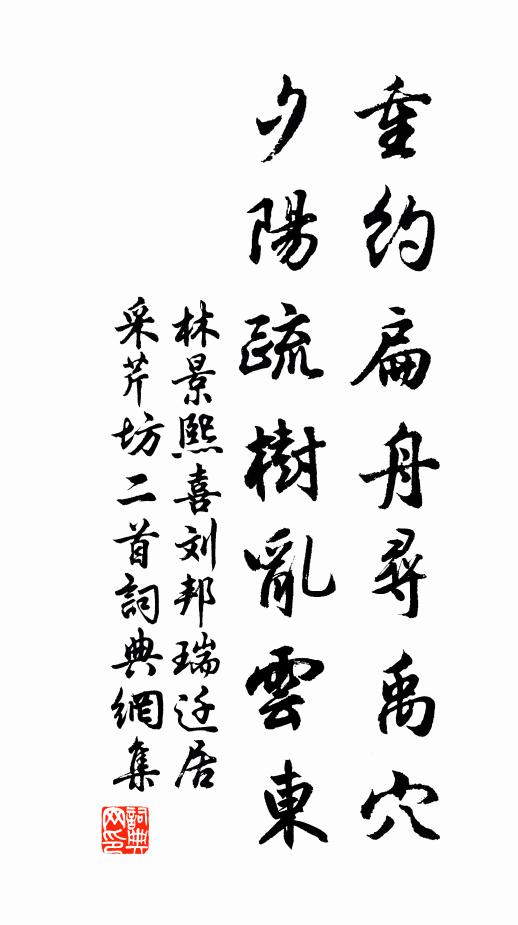 重約扁舟尋禹穴
夕陽疏樹亂雲東
林景熙喜刘邦瑞迁居
采芹坊二首詞典網集
詞典网印